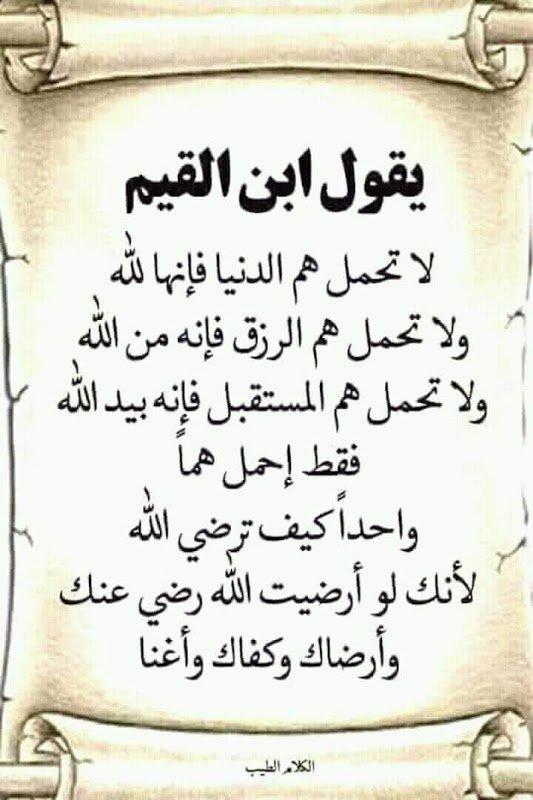 يقول ابن القيم
لا تحمل هم الدنيا فإنها لله
ولا تحمل هم الرزق فإنه من الله
ولا تحمل هم المستقبل فإنه بيد الله
فقط إحمل هماً
واحداً كيف ترضي الله
لأنك لو أرضيت الله رضي عنك
وأرضاك وكفاك وأغنا
الكلام الطيب